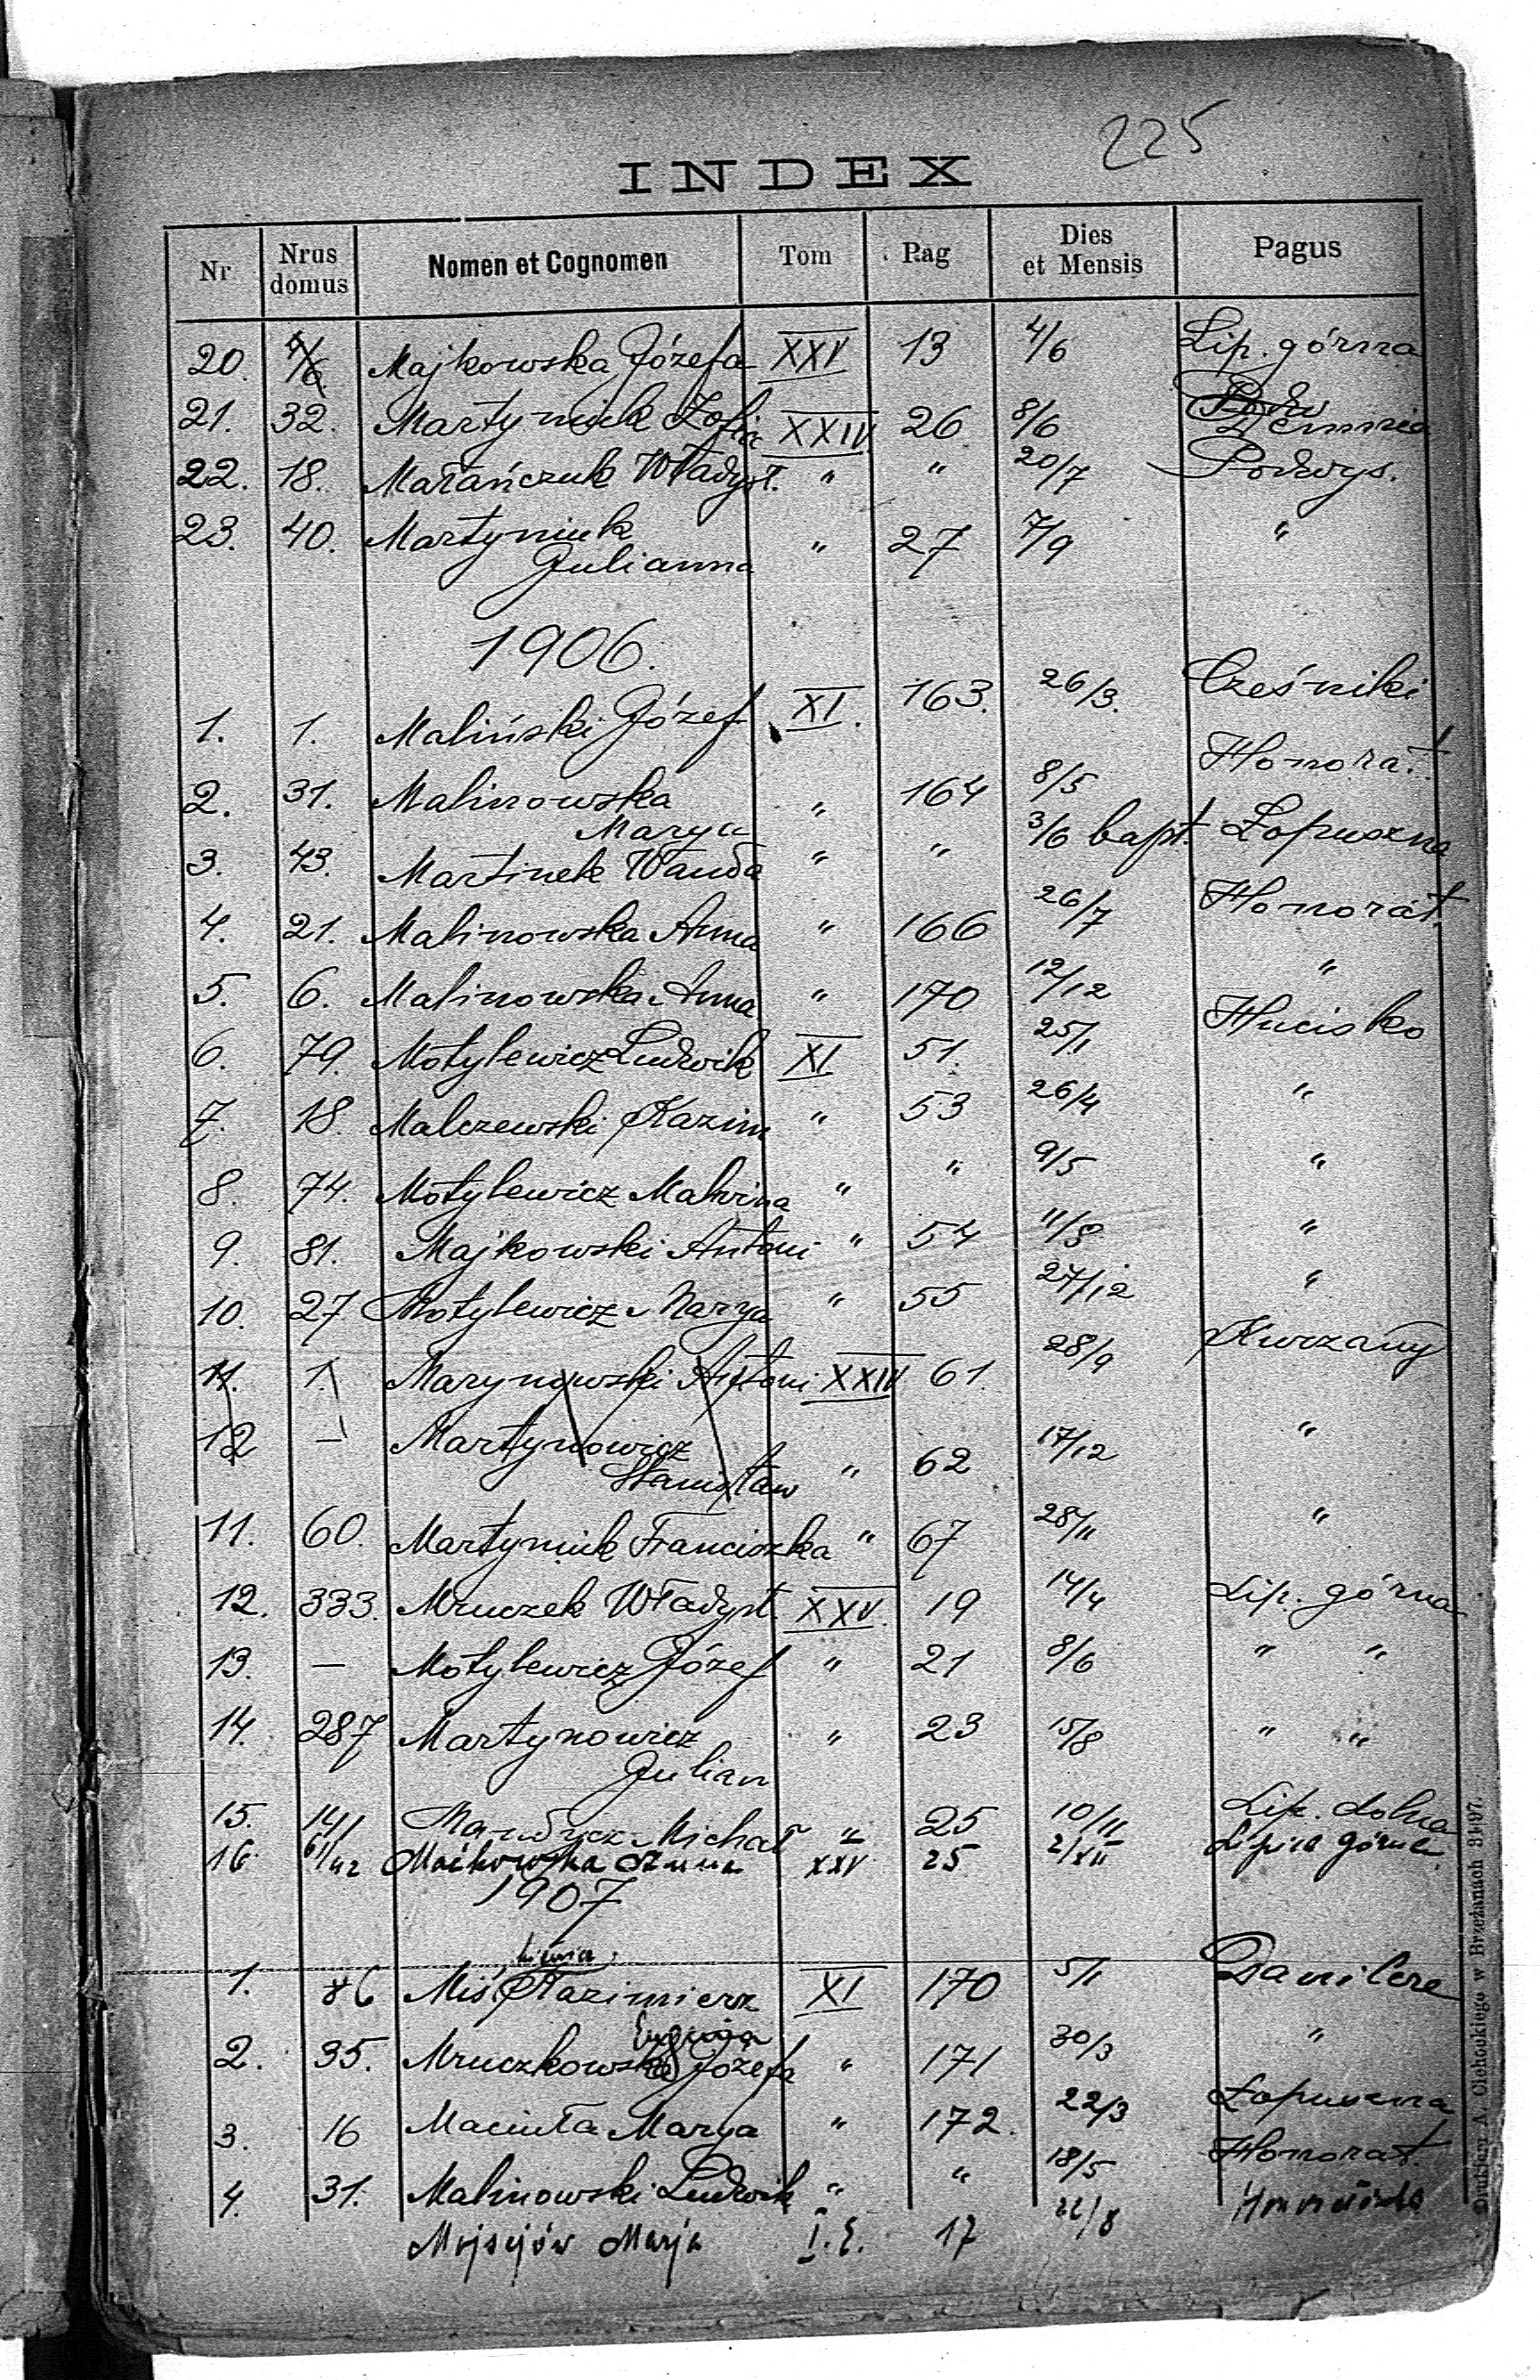 225
INDEX
Nr Nrus domus Nomen et Cognomen Tom Pag Dies et Mensis Pagus
20. 4/6 Majkowska Józefa XXV 13 4/6 Lip. górna
21. 32. Martyniuk Zofia XXIV 26 8/6 Demnia
22. 18. Marańczuk Władysł. " " 20/7 Podwys.
23. 40. Martyniuk " 27 7/9 "
Julianna
1906.
1. 1. Maliński Józef XI. 163. 26/3. Cześniki
2. 31. Malinowska " 164 8/5 Honorat.
Marya
3. 43. Martinek Wanda " " 3/6 bapt. Łopuszna
4. 21. Malinowska Anna " 166 26/7 Honorat.
5. 6. Malinowska Anna " 170 12/12 "
6. 79. Motylewicz Ludwik XI 51. 25/1 Hucisko
7. 18. Malczewski Kazim " 53 26/4 "
8. 74. Motylewicz Malwina " " 9/5 "
9. 81. Majkowski Antoni " 54 11/8 "
10. 27 Motylewicz Marya " 55 27/12 "
11. 1. Marynowski Antoni XXIV 61. 28/9 Kurzany
12 — Martynowicz " 62 17/12 "
Stanisław
11. 60. Martyniuk Franciszka " 67 28/11 "
12. 333. Mruczek Władysł. XXV. 19 14/4 Lip. górna
13. — Motylewicz Józef " 21 8/6 " "
14. 287 Martynowicz " 23 15/8 " "
Julian
15. 141 Michał " 25 10/11 Lip. dolna
16. 61/42 Maćkowska Anna XXV 25 2/XII Lipica górna
1907
1. 86 Miś Kazimierz XI 170 5/1 Danilcze
Eugenia
2. 35. Mruczkowska Józefa " 171 30/3 "
3. 16 Maciuła Marya " 172. 22/3 Łopuszna
4. 31. Malinowski Ludwik " " 18/5 Honorat.
Mojsejów Marja I. E. 17 22/8
Drukiem A. Cichockiego w Brzeżanach 31•97.